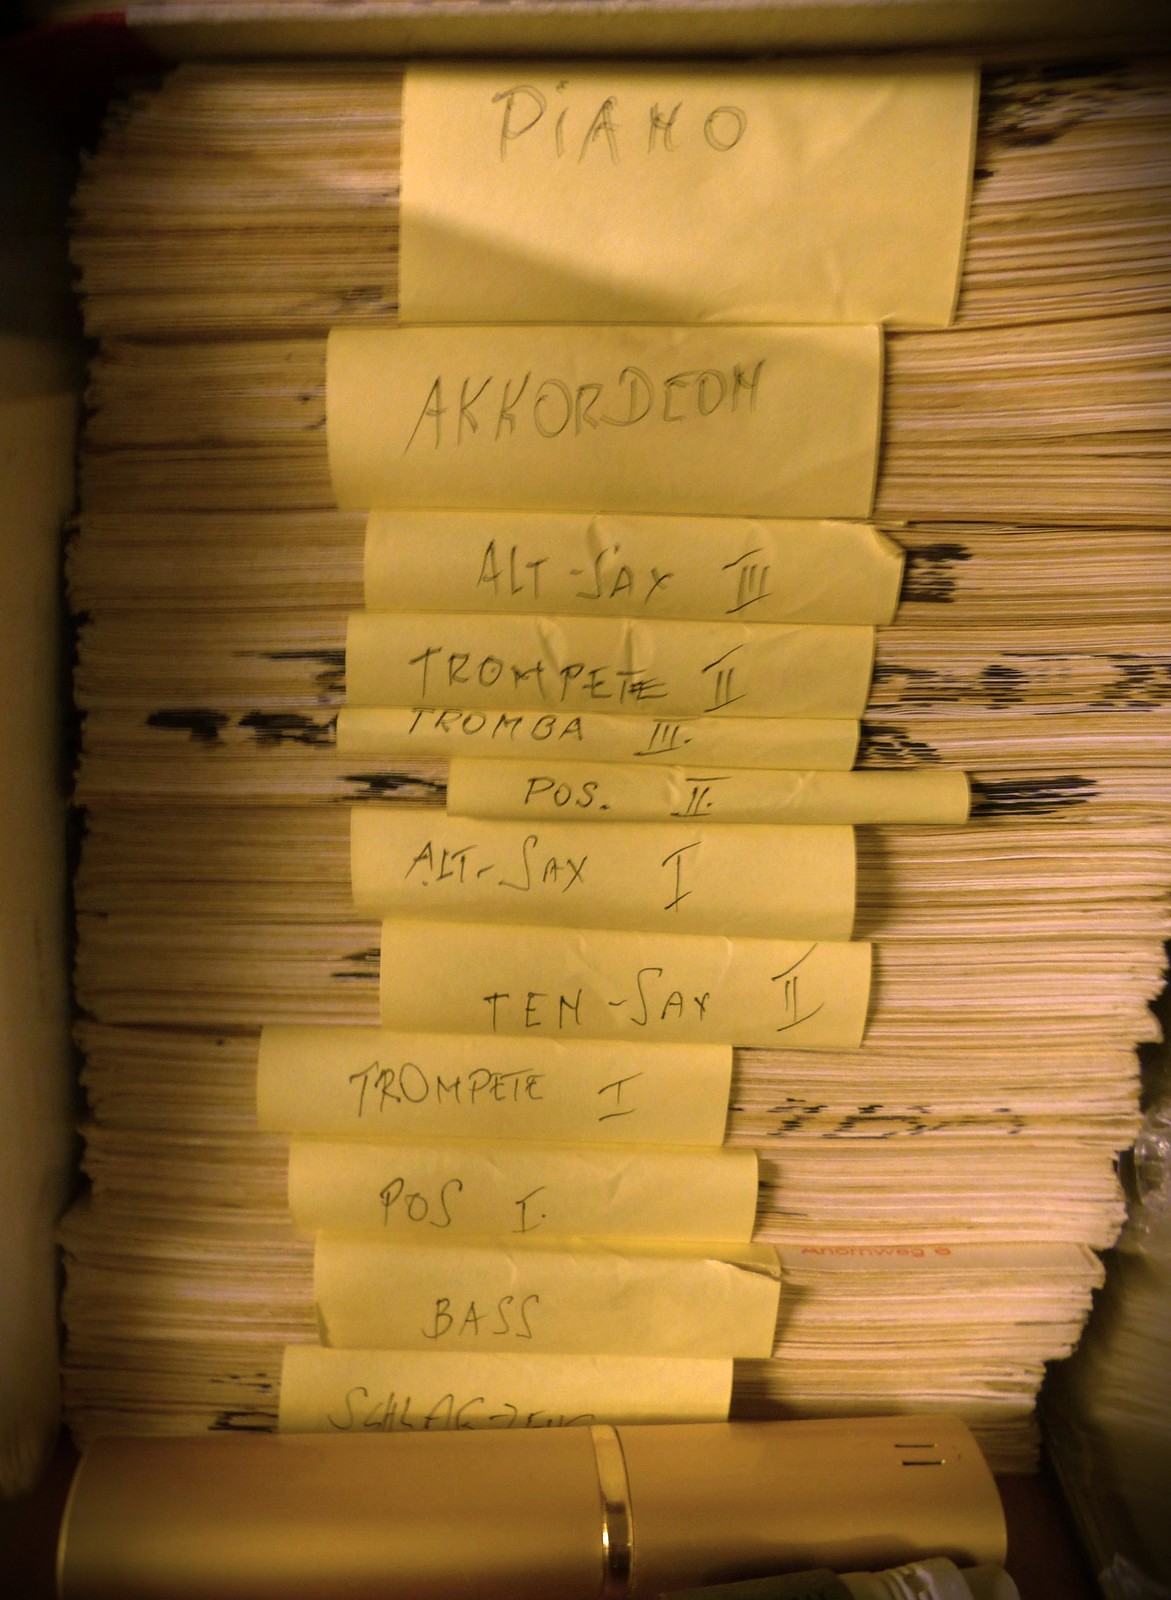 PiANO
AKKORDEON
ALT-SAX III
TROMPETE II
TROMBA III.
POS. II.
ALT-SAX I
TEN-SAX II
TROMPETE I
POS I.
Ahornweg 8
BASS
SCHLAGZEUG